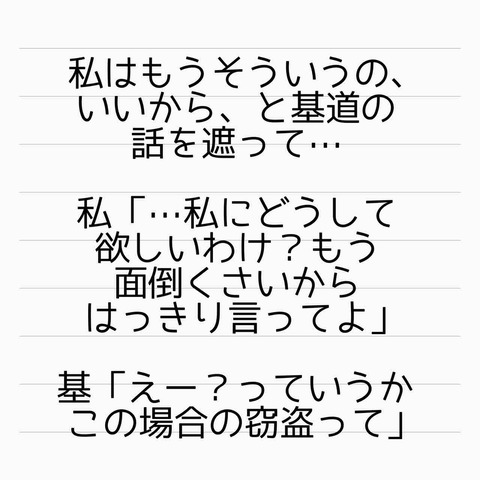 私はもうそういうの、
いいから、と基道の
話を遮って…
私「…私にどうして
欲しいわけ？もう
面倒くさいから
はっきり言ってよ」
基「えー？っていうか
この場合の窃盗って」